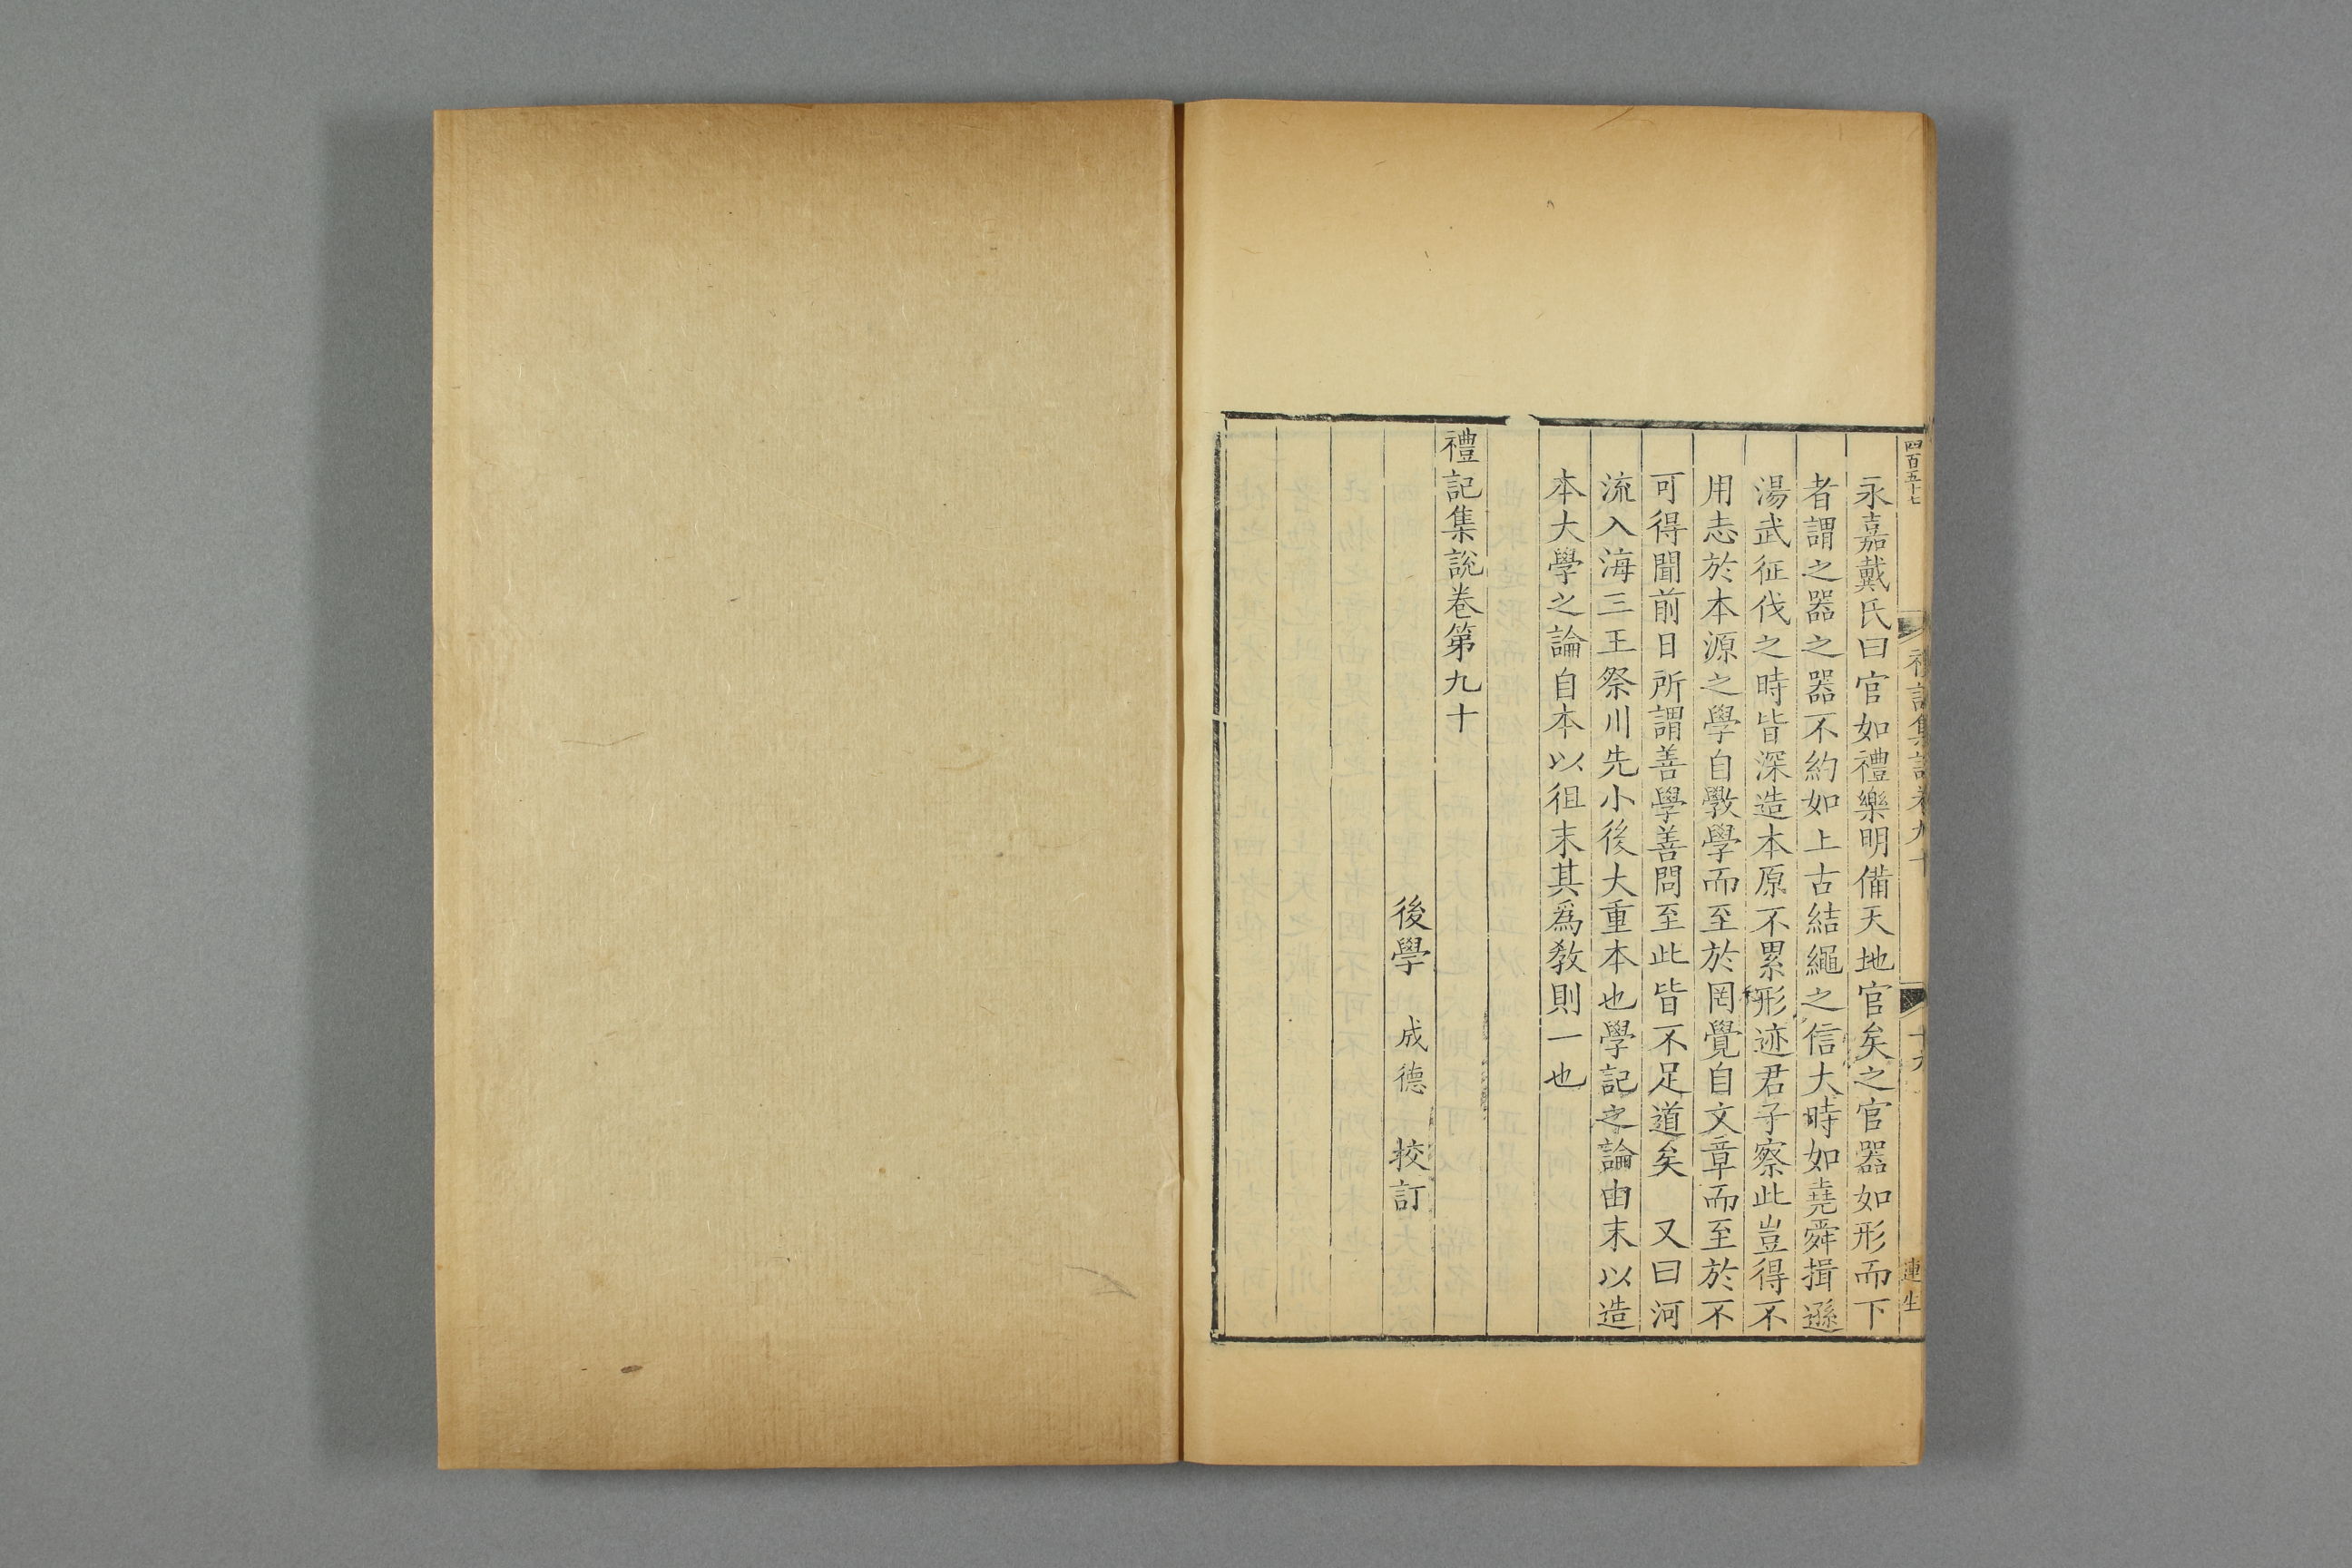 四百五十七
禮記集說卷九十
十六
連生
永嘉戴氏曰官如禮樂明備天地官矣之官器如形而下
者謂之器之器不約如上古結繩之信大時如堯舜揖遜
湯武征伐之時皆深造本原不累形迹君子察此豈得不
用志於本源之學自斆學而至於罔覺自文章而至於不
可得聞前日所謂善學善問至此皆不足道矣　又曰河
流入海三王祭川先小後大重本也學記之論由末以造
本大學之論自本以徂末其爲教則一也
禮記集說卷第九十
後學　成德　挍訂